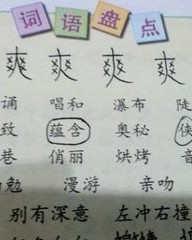 词语盘点
爽 爽 爽 爽
诵 唱和 瀑布 陡
致 蕴含 奥秘
巷 俏丽 烘烤 音
勉 漫游 亲吻
别有深意 左冲右撞